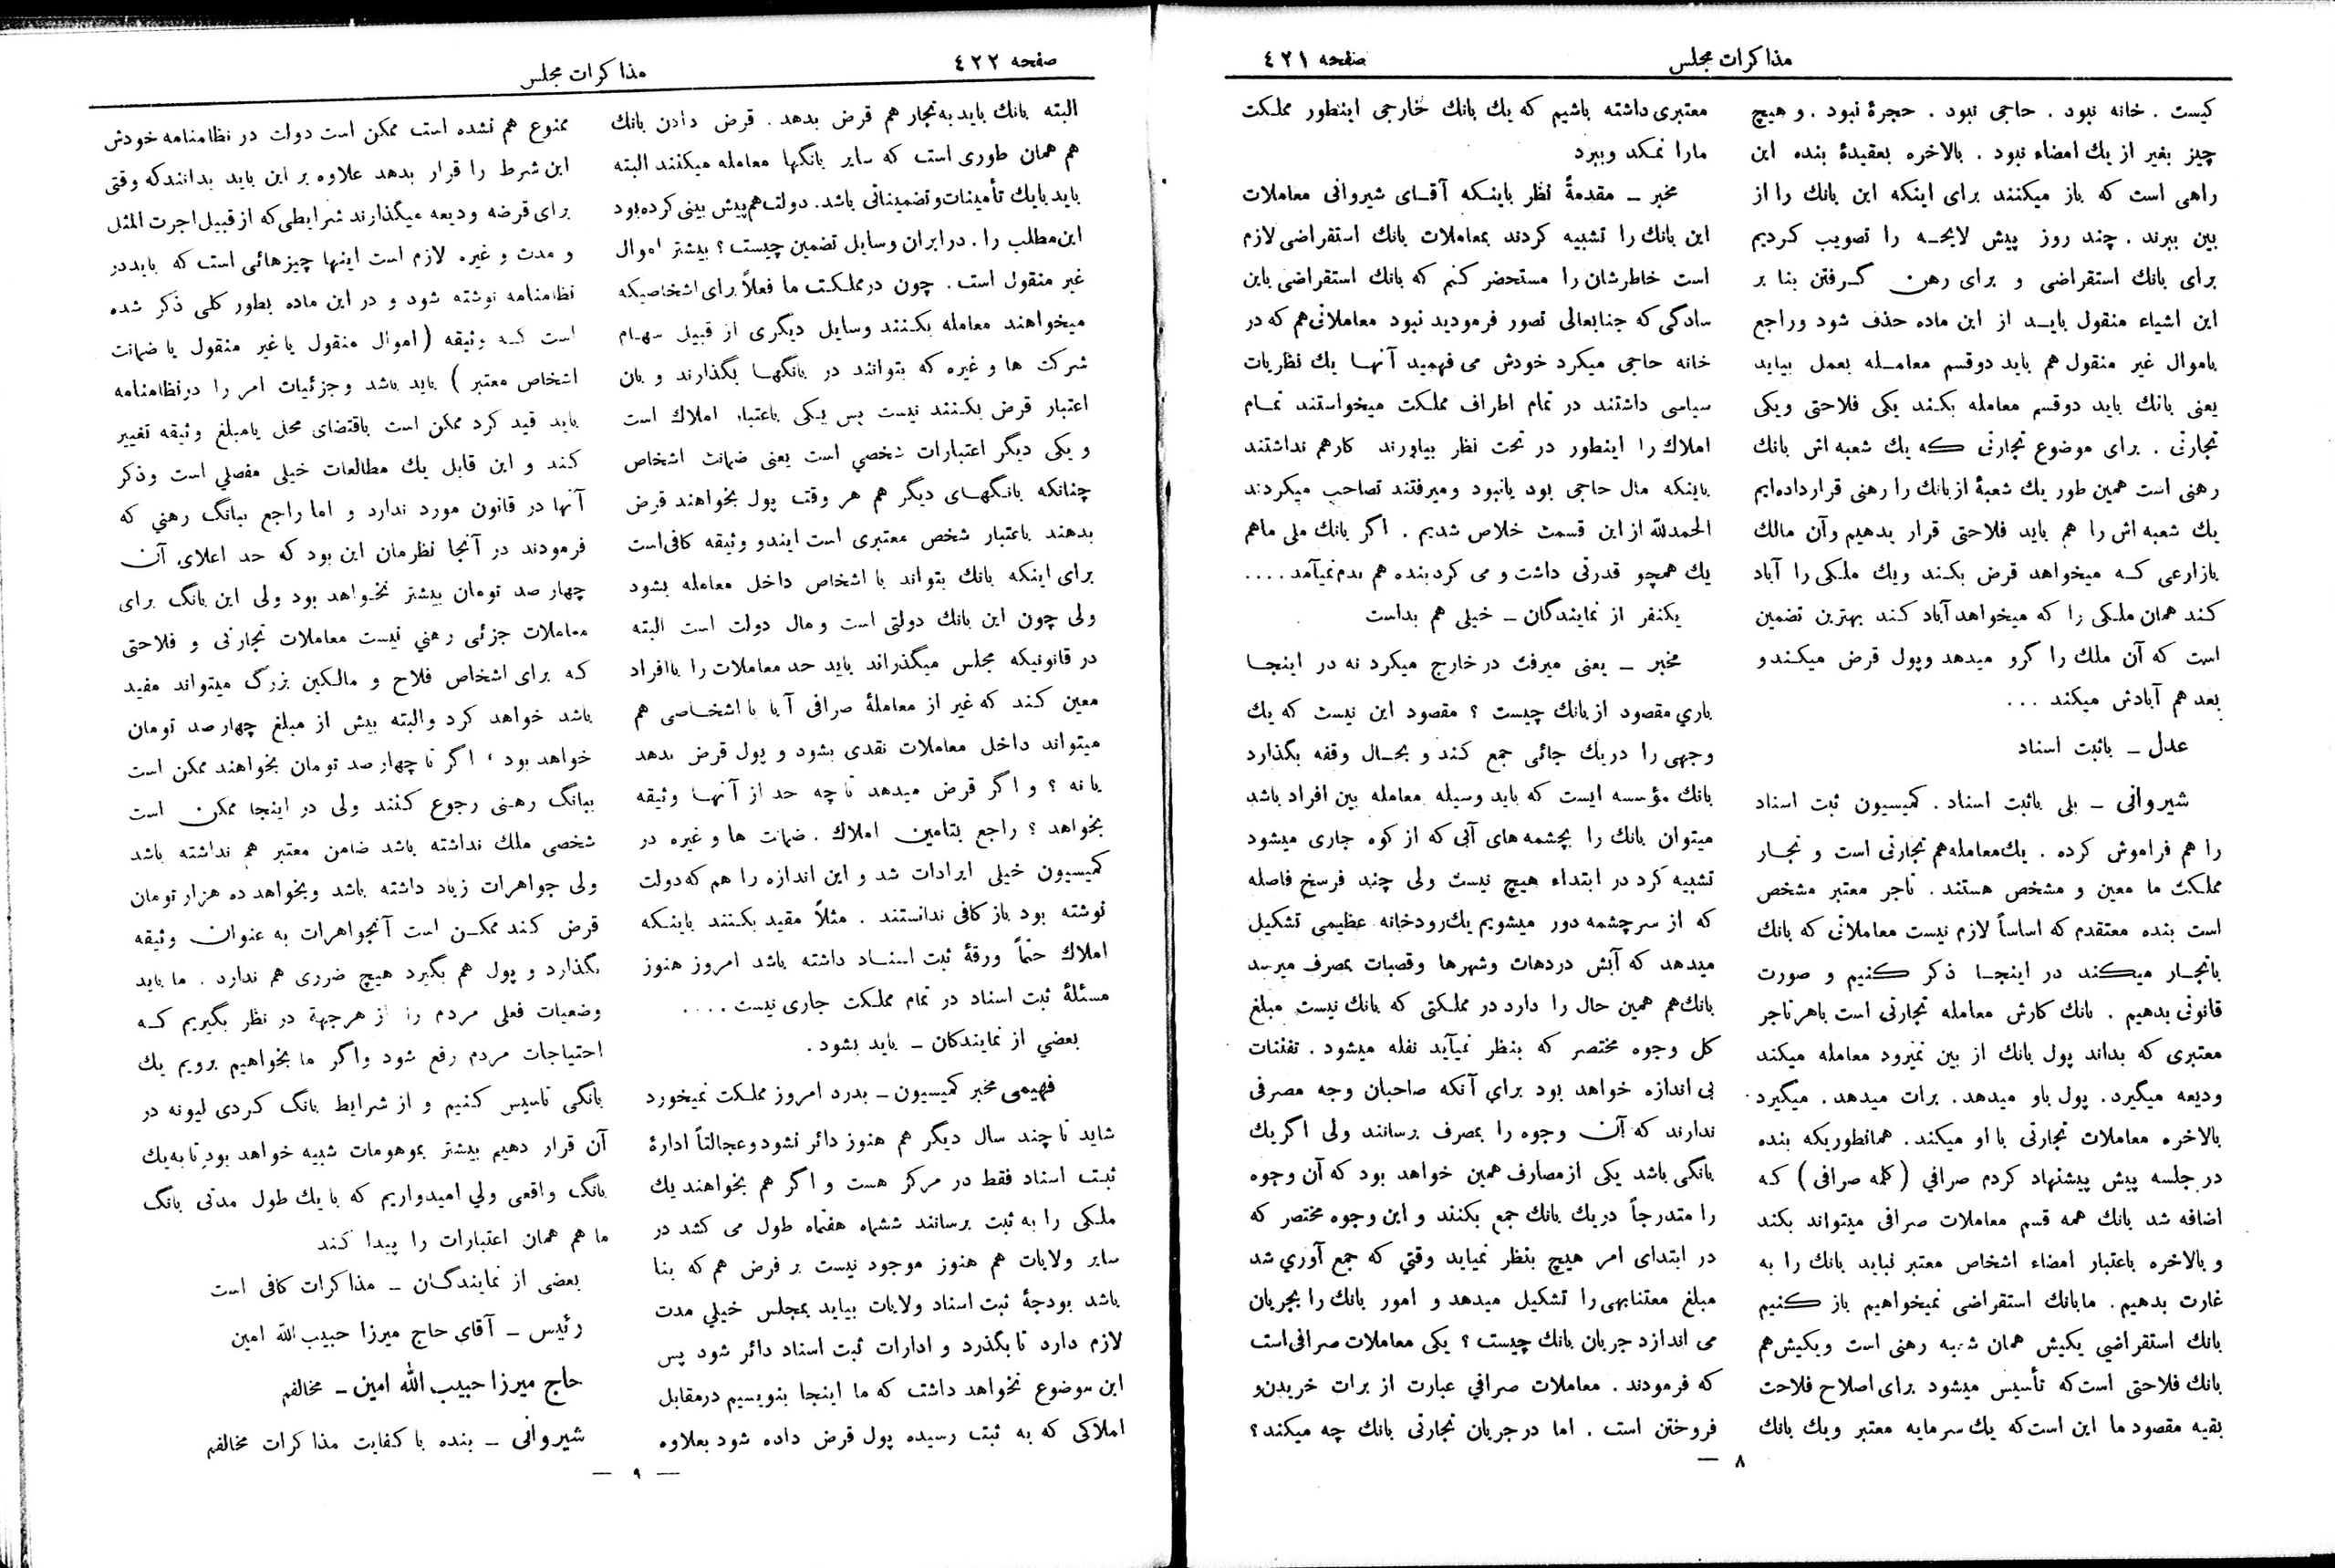 مذاکرات مجلس
صفحه ٤٢١
کیست . خانه نبود . حاجی نبود . حجرهٔ نبود . و هیچ
چیز بغیر از یك امضاء نبود . بالاخره بعقیدهٔ بنده این
راهی است که باز میکنند برای اینکه این بانك را از
بین ببرند . چند روز پیش لایحه را تصویب کردیم
برای بانك استقراضی و برای رهن گرفتن بنا بر
این اشیاء منقول باید از این ماده حذف شود وراجع
باموال غیر منقول هم باید دوقسم معامله بعمل بیاید
یعنی بانك باید دوقسم معامله بکند یکی فلاحتی ویکی
تجارتی . برای موضوع تجارتی که یك شعبه اش بانك
رهنی است همین طور یك شعبهٔ ازبانك را رهنی قرارداده‌ایم
یك شعبه اش را هم باید فلاحتی قرار بدهیم وآن مالك
یازارعی که میخواهد قرض بکند ویك ملکی را آباد
کند همان ملکی را که میخواهد آباد کند بهترین تضمین
است که آن ملك را گرو میدهد وپول قرض میکند و
بعد هم آبادش میکند ...
عدل – باثبت اسناد
شیروانی – بلی باثبت اسناد . کمیسیون ثبت اسناد
را هم فراموش کرده . یك‌معامله‌هم تجارتی است و تجار
مملکت ما معین و مشخص هستند . تاجر معتبر مشخص
است بنده معتقدم که اساساً لازم نیست معاملاتی که بانك
باتجار میکند در اینجا ذکر کنیم و صورت
قانونی بدهیم . بانك کارش معامله تجارتی است باهر تاجر
معتبری که بداند پول بانك از بین نمیرود معامله میکند
ودیعه میگیرد. پول باو میدهد. برات میدهد. میگیرد.
بالاخره معاملات تجارتی با او میکند. همانطوریکه بنده
در جلسه پیش پیشنهاد کردم صرافي (کلمه صرافی) که
اضافه شد بانك همه قسم معاملات صرافی میتواند بکند
و بالاخره باعتبار امضاء اشخاص معتبر نباید بانك را به
غارت بدهیم. مابانك استقراضی نمیخواهیم باز کنیم
بانك استقراضي یکیش همان شعبه رهنی است ویکیش‌هم
بانك فلاحتی است‌که تأسیس میشود برای اصلاح فلاحت
بقیه مقصود ما این است‌که یك‌سرمایه معتبر ویك بانك
معتبری داشته باشیم که یك بانك خارجی اینطور مملکت
مارا نمکد وببرد
مخبر – مقدمةً نظر باینکه آقای شیروانی معاملات
این بانك را تشبیه کردند بمعاملات بانك استقراضی لازم
است خاطرشان را مستحضر کنم که بانك استقراضی باین
سادگی که جنابعالی تصور فرمودید نبود معاملاتی‌هم که در
خانه حاجی میکرد خودش می فهمید آنها یك نظریات
سیاسی داشتند در تمام اطراف مملکت میخواستند تمام
املاك را اینطور در تحت نظر بیاورند کارهم نداشتند
باینکه مال حاجی بود یانبود ومیرفتند تصاحب میکردند
الحمدلله از این قسمت خلاص شدیم . اگر بانك ملی ماهم
یك همچو قدرتی داشت و می کرد بنده هم بدم نمیآمد ....
یکنفر از نمایندگان – خیلی هم بداست
مخبر – یعنی میرفت در خارج میکرد نه در اینجا
باري مقصود از بانك چیست ؟ مقصود این نیست که یك
وجهی را دریك جائی جمع کند و بحال وقفه بگذارد
بانك مؤسسه ایست که باید وسیله معامله بین افراد باشد
میتوان بانك را بچشمه های آبی که از کوه جاری میشود
تشبیه کرد در ابتداء هیچ نیست ولی چند فرسخ فاصله
که از سرچشمه دور میشویم یك‌رودخانه عظیمی تشکیل
میدهد که آبش دردهات وشهرها وقصبات بمصرف میرسد
بانك‌هم همین حال را دارد در مملکتی که بانك نیست مبلغ
کل وجوه مختصر که بنظر نمیآید نفله میشود . تفننات
بی اندازه خواهد بود براي آنکه صاحبان وجه مصرفی
ندارند که آن وجوه را بمصرف برسانند ولی اگر یك
بانگی باشد یکی ازمصارف همین خواهد بود که آن وجوه
را متدرجاً دریك بانك جمع بکنند و این وجوه مختصر که
در ابتدای امر هیچ بنظر نمیاید وقتي که جمع آوري شد
مبلغ معتنابهی را تشکیل میدهد و امور بانك را بجریان
می اندازد جریان بانك چیست ؟ یکی معاملات صرافی‌است
که فرمودند . معاملات صرافي عبارت از برات خریدن‌و
فروختن است . اما درجریان تجارتی بانك چه میکند؟
٨ —
صفحه ٤٢٢
مذاکرات مجلس
البته بانك باید به‌تجار هم قرض بدهد . قرض دادن بانك
هم همان طوری است که سایر بانگها معامله میکنند البته
باید بایك تأمینات و تضمیناتی باشد. دولت‌هم‌پیش بینی کرده‌بود
این‌مطلب را . درایران وسایل تضمین چیست ؟ بیشتر اموال
غیر منقول است . چون درمملکت ما فعلاً برای اشخاصیکه
میخواهند معامله بکنند وسایل دیگری از قبیل سهام
شرکت ها و غیره که بتوانند در بانگها بگذارند و بان
اعتبار قرض بکنند نیست پس یکی باعتبار املاك است
و یکی دیگر اعتبارات شخصي است یعنی ضمانت اشخاص
چنانکه بانگهای دیگر هم هر وقت پول بخواهند قرض
بدهند باعتبار شخص معتبری است ایندو وثیقه کافی‌است
برای اینکه بانك بتواند با اشخاص داخل معامله بشود
ولی چون این بانك دولتی است ومال دولت است البته
در قانونیکه مجلس میگذراند باید حد معاملات را باافراد
معین کند که غیر از معاملهٔ صرافی آیا با اشخاصی هم
میتواند داخل معاملات نقدی بشود و پول قرض بدهد
یا نه ؟ و اگر قرض میدهد تا چه حد از آنها وثیقه
بخواهد ؟ راجع بتامین املاك . ضمانت ها و غیره در
کمیسیون خیلی ایرادات شد و این اندازه را هم که‌دولت
نوشته بود باز کافی ندانستند . مثلاً مقید بکنند باینکه
املاك حتماً ورقهٔ ثبت اسناد داشته باشد امروز هنوز
مسئلهٔ ثبت اسناد در تمام مملکت جاری نیست ....
بعضي از نمایندکان – باید بشود .
فهیمی مخبر کمیسیون – بدرد امروز مملکت نمیخورد
شاید تا چند سال دیگر هم هنوز دائر نشود وعجالتاً ادارهٔ
ثبت اسناد فقط در مرکز هست و اگر هم بخواهند یك
ملکی را به ثبت برسانند ششماه هفتماه طول می کشد در
سایر ولایات هم هنوز موجود نیست بر فرض هم که بنا
باشد بودجهٔ ثبت اسناد ولایات بیاید بمجلس خیلي مدت
لازم دارد تا بگذرد و ادارات ثبت اسناد دائر شود پس
این موضوع نخواهد داشت که ما اینجا بنویسیم درمقابل
املاکی که به ثبت رسیده پول قرض داده شود بعلاوه
ممنوع هم نشده است ممکن است دولت در نظامنامه خودش
این شرط را قرار بدهد علاوه بر این باید بدانند‌که وقتی
برای قرضه ودیعه میگذارند شرایطی‌که از قبیل اجرت المثل
و مدت و غیره لازم است اینها چیزهائی است که بایددر
نظامنامه نوشته شود و در این ماده بطور کلی ذکر شده
است که وثیقه (اموال منقول یاغیر منقول یا ضمانت
اشخاص معتبر) باید باشد وجزئیات امر را درنظامنامه
باید قید کرد ممکن است باقتضای محل یامبلغ وثیقه تغییر
کند و این قابل یك مطالعات خیلی مفصلي است وذکر
آنها در قانون مورد ندارد و اما راجع ببانگ رهني که
فرمودند در آنجا نظرمان این بود که حد اعلای آن
چهار صد تومان بیشتر نخواهد بود ولی این بانگ برای
معاملات جزئی رهني نیست معاملات تجارتی و فلاحتی
که برای اشخاص فلاح و مالکین بزرگ میتواند مفید
باشد خواهد کرد والبته بیش از مبلغ چهار صد تومان
خواهد بود ، اگر تا چهار صد تومان بخواهند ممکن است
ببانگ رهنی رجوع کنند ولی در اینجا ممکن است
شخصی ملك نداشته باشد ضامن معتبر هم نداشته باشد
ولی جواهرات زیاد داشته باشد وبخواهد ده هزار تومان
قرض کند ممکن است آنجواهرات به عنوان وثیقه
بگذارد و پول هم بگیرد هیچ ضرری هم ندارد . ما باید
وضعیات فعلی مردم را از هرجهة در نظر بگیریم که
احتیاجات مردم رفع شود واگر ما بخواهیم برویم یك
بانگی تاسیس کنیم و از شرایط بانگ کردی لیونه در
آن قرار دهیم بیشتر بموهومات شبیه خواهد بود تا به‌یك
بانگ واقعی ولي امیدواریم که با یك طول مدتی بانگ
ما هم همان اعتبارات را پیدا کند
بعضی از نمایندگان – مذاکرات کافی است
رئیس – آقای حاج میرزا حبیب الله امین
حاج میرزا حبیب الله امین – مخالفم
شیروانی – بنده با کفایت مذاکرات مخالفم
— ٩ —